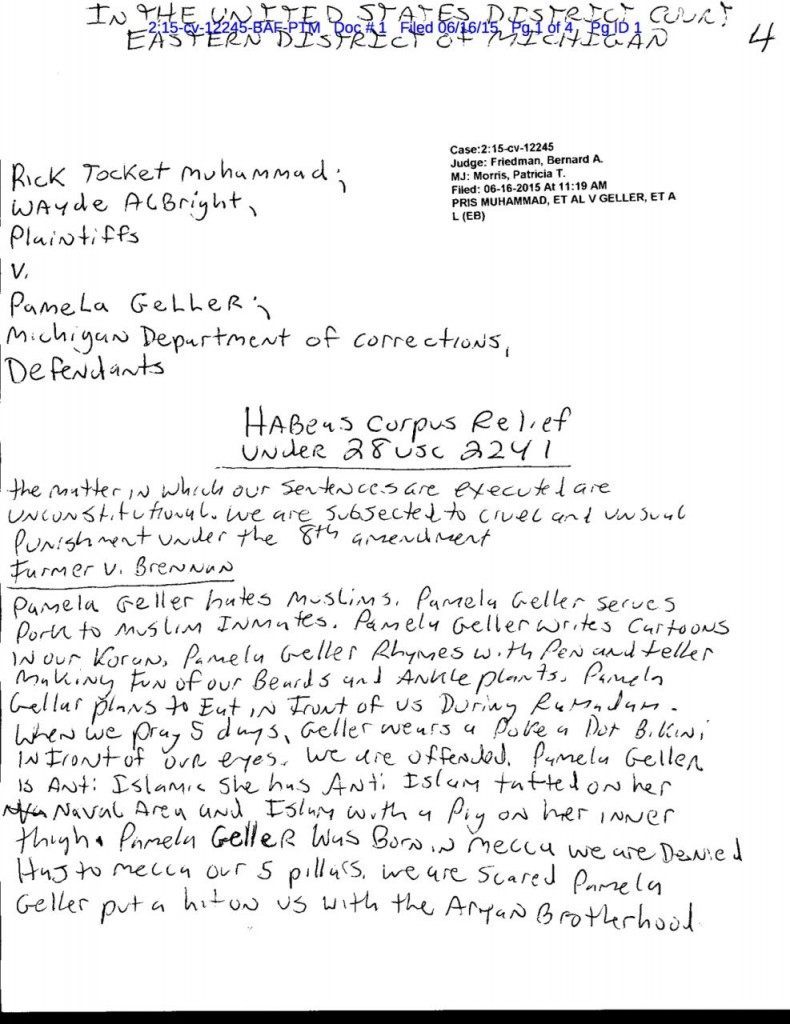 IN THE UNITED STATES DISTRICT COURT
2:15-cv-12245-BAF-PTM Doc # 1 Filed 06/16/15 Pg 1 of 4 Pg ID 1
EASTERN DISTRICT OF MICHIGAN
4
Case:2:15-cv-12245
Judge: Friedman, Bernard A.
MJ: Morris, Patricia T.
Filed: 06-16-2015 At 11:19 AM
PRIS MUHAMMAD, ET AL V GELLER, ET A
L (EB)
Rick Tocket Muhammad;
Wayde Albright,
Plaintiffs
V.
Pamela Geller;
Michigan Department of corrections,
Defendants
Habeas Corpus Relief
under 28 USC 2241
the matter in which our sentences are executed are
unconstitutional. we are subsected to cruel and unsual
Punishment under the 8th amendment
Farmer v. Brennan
Pamela Geller hates Muslims. Pamela Geller serves
Pork to Muslim Inmates. Pamela Geller writes Cartoons
in our Koran, Pamela Geller Rhymes with Pen and teller
Making Fun of our Beards and Ankle plants. Pamela
Gellar plans to Eat in Front of us During Ramadam.
When we pray 5 days, Geller wears a Poke a Dot Bikini
in Front of our eyes. we are offended. Pamela Geller
is Anti Islamic she has Anti Islam tatted on her
Naval Area and Islam with a Pig on her inner
thigh. Pamela Geller Was Born in Mecca we are Denied
Haj to mecca our 5 pillars. we are scared Pamela
Geller put a hit on us with the Aryan Brotherhood